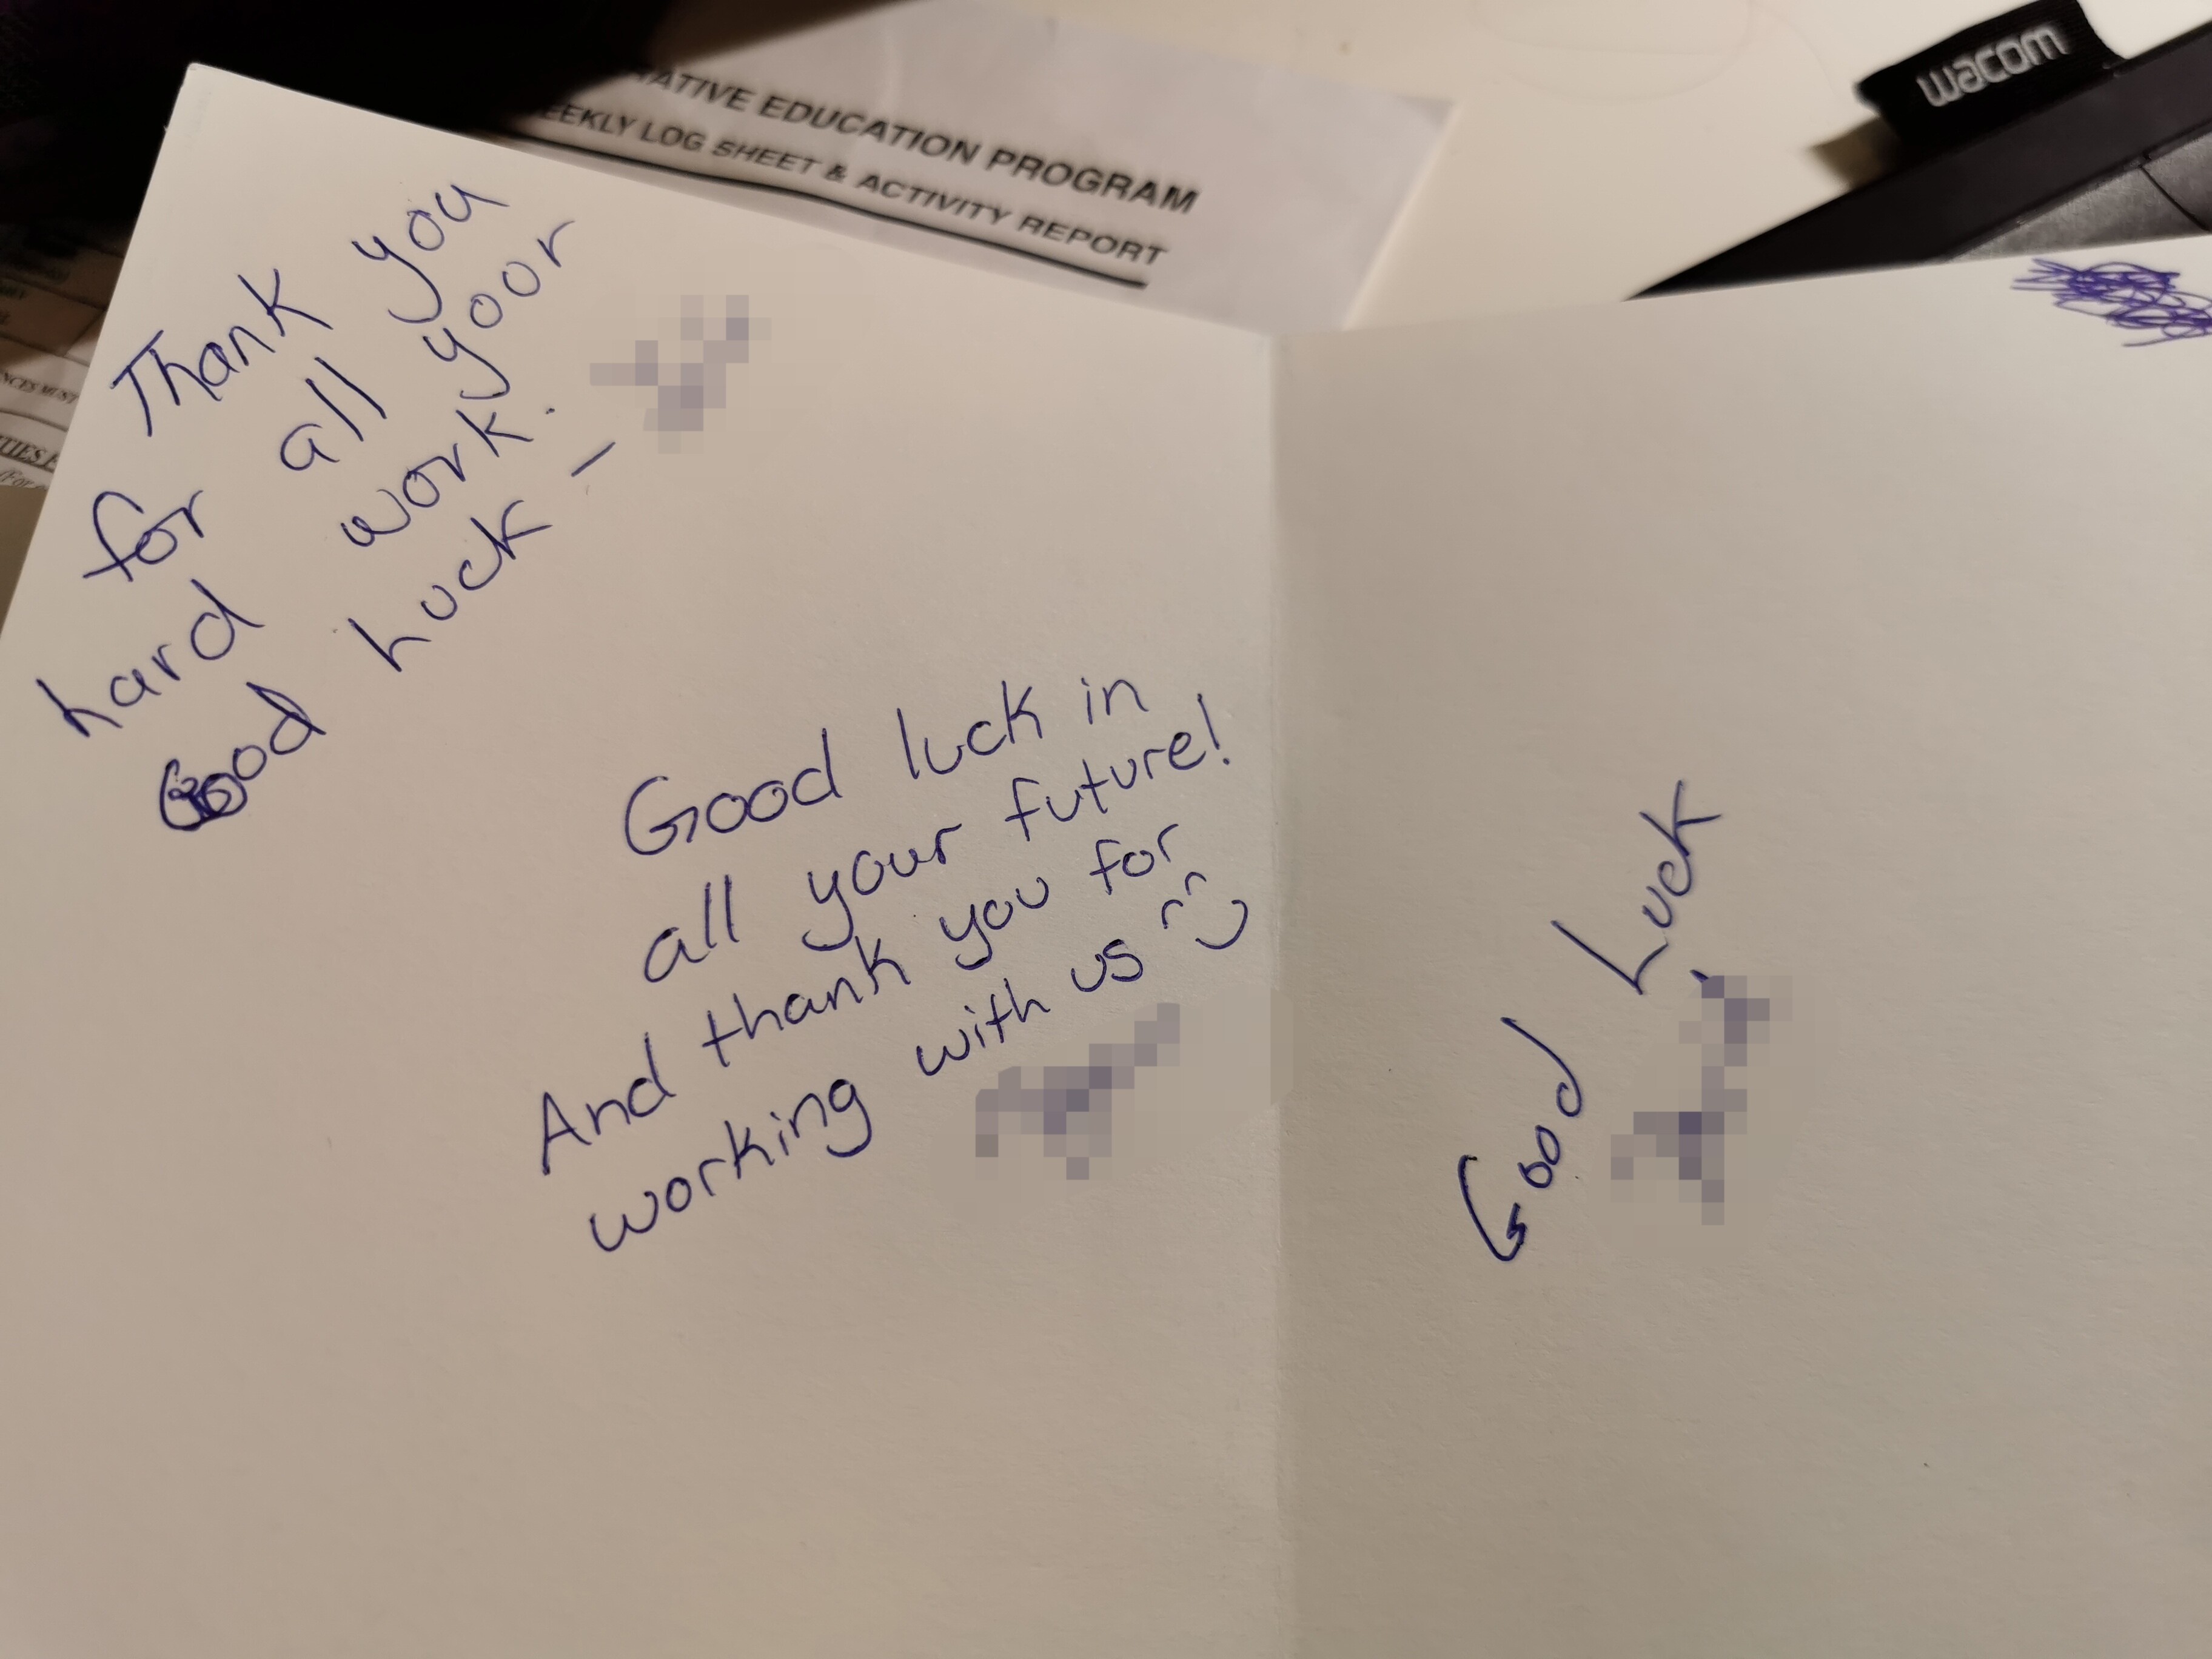 wacom
EDUCATION PROGRAM
LOG SHEET & ACTIVITY REPORT
Thank you
for all yoor
hard work.
Good Luck -
Good luck in
all your future!
And thank you for
working with us
Good Luck
MUST